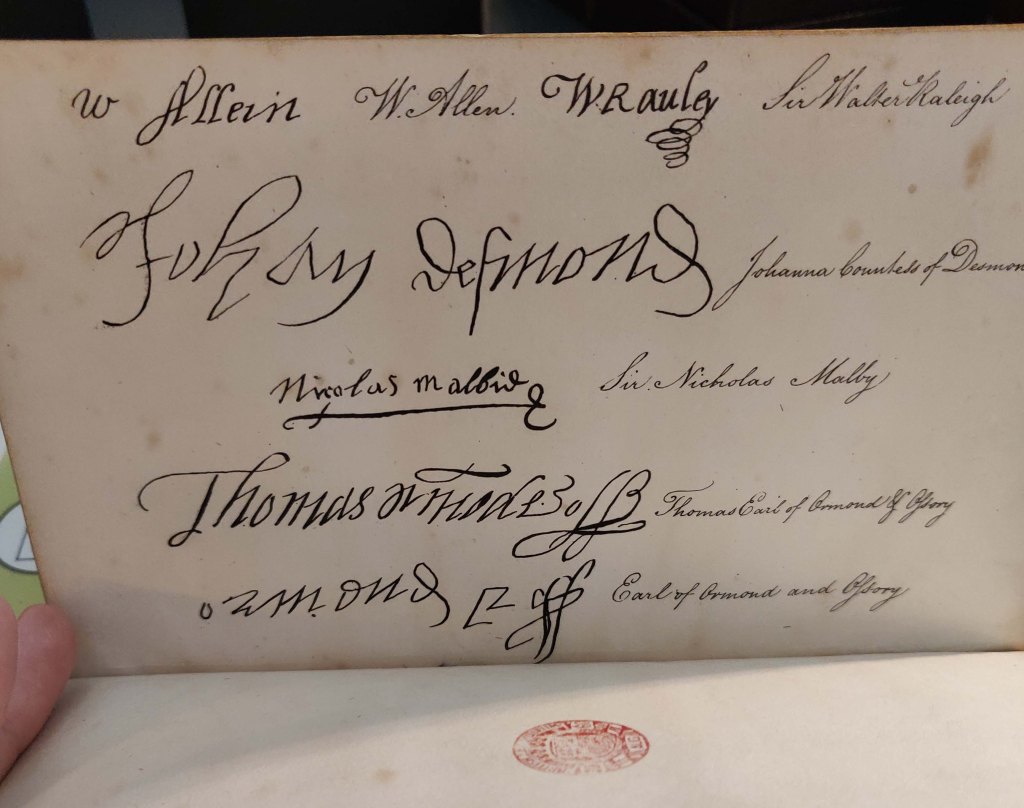 W Allein W. Allen. W. Rauley Sir Walter Raleigh
Johan Desmond Johanna Countess of Desmon
Nicolas Malbie Sir Nicholas Malby
Thomas Earl of Ormond & Ossory
Earl of Ormond and Ossory